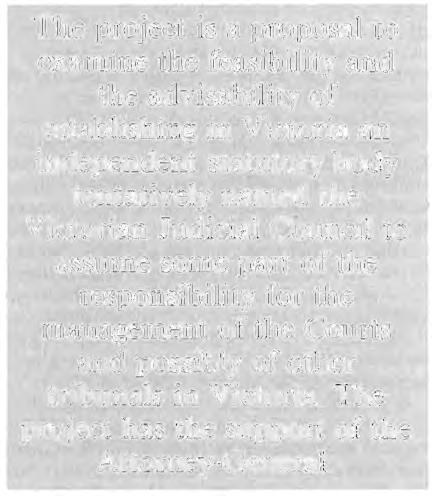 The project is a proposal to
examine the feasibility and
the advisability of
establishing in Victoria an
independent statutory body
tentatively named the
Victorian Judicial Council to
assume some part of the
responsibility for the
management of the Courts
and possibly of other
tribunals in Victoria. The
project has the support of the
Attorney-General.